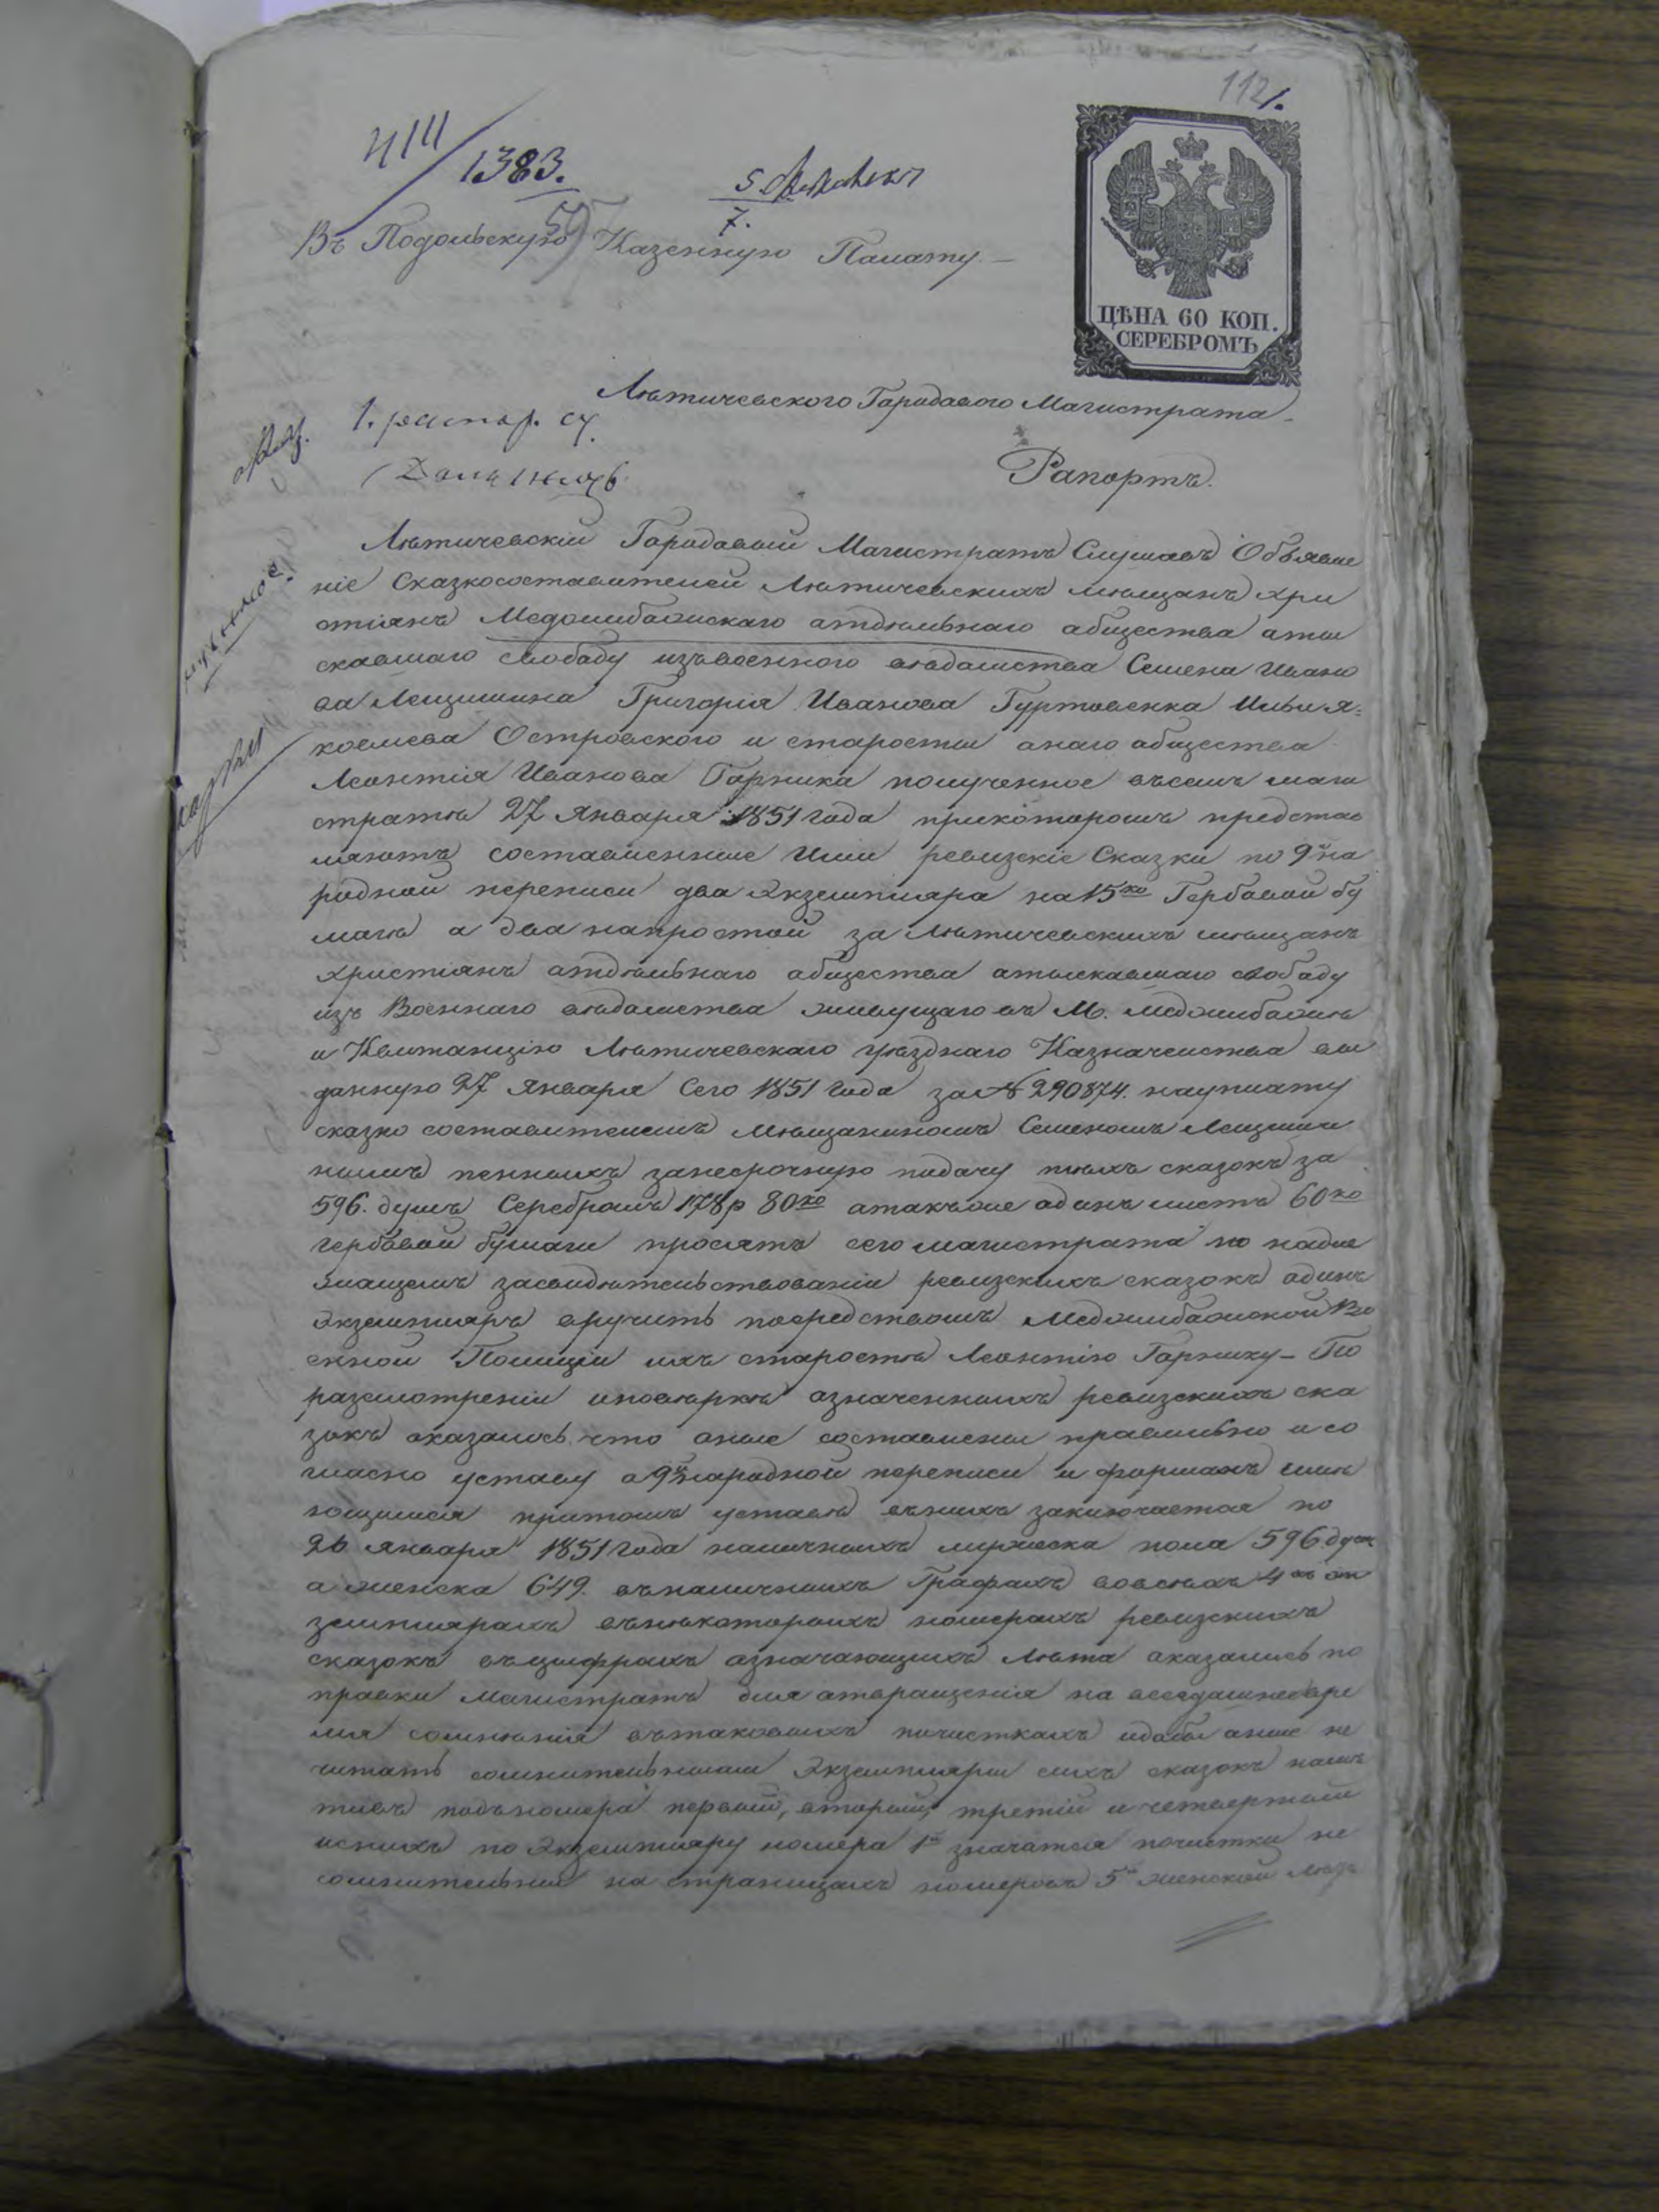 112
414/1383.
5
7.
Въ Подольскую Казенную Палату —
ЦѢНА 60 КОП.
СЕРЕБРОМЪ
Лѣтичевского Городового Магистрата
Рапортъ.
Лѣтичевскій Городовый Магистратъ Слушавъ Объявле
ніе Сказкосоставителей Лѣтичевскихъ мѣщанъ хри
стіянъ Меджибожскаго атдѣльнаго абщества аты
скавшаго свободу изъ военного вѣдамства Семена Ивано
ва Лещишина Григорія Иванова Гуртовенка Ильи Я=
ковлева Островского и старосты анаго абщества
Леонтія Иванова Гарника полученное въ семъ маги
стратѣ 27 Января 1851 года при которомъ представ
ляютъ составленные Ими ревизскіе Сказки по 9й на
родной переписи два Экземпляра на 15ко Гербовой бу
магѣ а два на простой за Лѣтичевскихъ мѣщанъ
христіянъ атдѣльнаго абщества атыскавшаго свободу
изъ Военнаго вѣдамства живущаго въ М. Меджибожѣ
и Квитанцію Лѣтичевскаго уѣзднаго Казначейства вы
данную 27 Января Сего 1851 Года за № 290874. на уплату
сказко составителемъ Мѣщаниномъ Семеномъ Лещиши
нымъ пенныхъ за несрочную падачу тѣхъ сказокъ за
596. душъ Серебромъ 178 р 80 ко атакъже адинъ листъ 60 ко
гербовой бумаги просятъ сего магистрата по надле
жащемъ засвидѣтельствованіи ревизскихъ сказокъ адинъ
Экземпляръ вручить посредствомъ Меджибожской Во
енной Полиціи ихъ старостѣ Леонтію Гарнику — По
разсмотреніи и повѣркѣ азначенныхъ ревизскихъ ска
зокъ аказалось что аные составлены правильно и со
гласно уставу о 9й народной переписи и формахъ имѣ
ющимся при томъ уставѣ въ нихъ заключается по
26 Января 1851 года наличныхъ мужеска пола 596 душ
а женска 649. въ наличныхъ Графахъ во всѣхъ 4хъ эк
земплярахъ въ нѣкоторыхъ номерахъ ревизскихъ
сказокъ въ цыфрахъ азначающихъ Лѣта аказались по
правки Магистратъ для атвращенія на всегдашнее вре
мя сомнѣнія въ таковыхъ почисткахъ и дабы аные не
читать сомнительными Экземпляры сихъ сказокъ намѣ
тивъ подъ номера первый, вторый, третій и четвертый
и с нихъ по Экземпляру номера 1й значатся почистки не
сомнительны на страницахъ номеровъ 5й женской